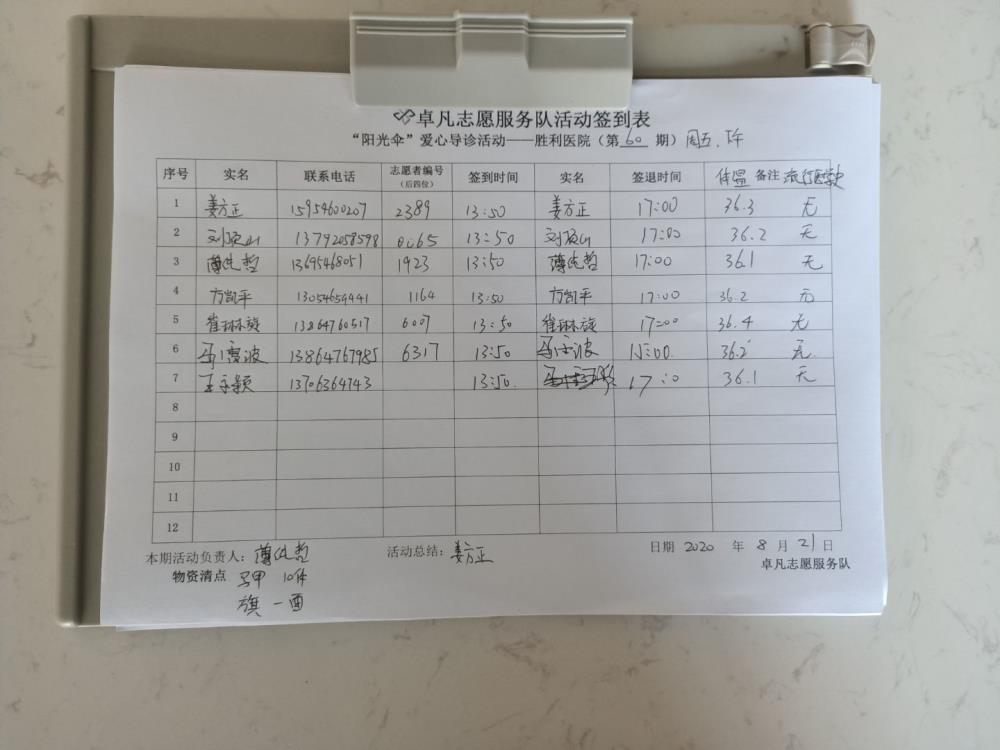 卓凡志愿服务队活动签到表
“阳光伞”爱心导诊活动——胜利医院（第 60 期）周五.下午
序号 实名 联系电话 志愿者编号（后四位） 签到时间 实名 签退时间 体温 备注 流行病学史
1 姜方正 15954600207 2389 13:50 姜方正 17:00 36.3 无
2 13792058598 0065 13:50 17:00 36.2 无
3 13695468051 1923 13:50 17:00 36.1 无
4 方凯平 13054659441 1164 13:50 方凯平 17:00 36.2 无
5 崔琳旋 13864760517 6007 13:50 崔琳旋 17:00 36.4 无
6 13864767985 6317 13:50 15:00. 36.2 无
7 13706364743 13:50. 17:0 36.1 无
8
9
10
11
12
本期活动负责人： 活动总结：姜方正 日期 2020 年 8 月 21 日
物资清点 马甲 10件 卓凡志愿服务队
旗 一面